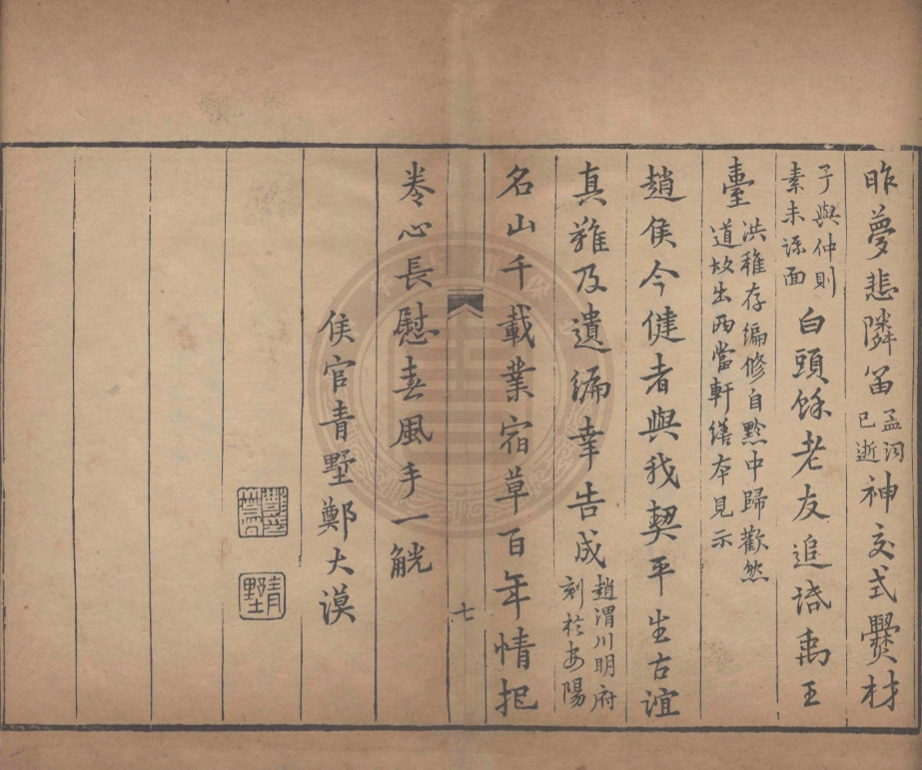 昨夢悲隣笛孟詞已逝神交式爨材
予與仲則素未謀面白頭餘老友追話禹王
臺洪稚存編修自黔中歸歡然道故出兩當軒繕本見示
趙侯今健者與我契平生古誼
真難及遺編幸告成趙渭川明府刻於安陽
名山千載業宿草百年情把
七
卷心長慰春風手一觥
侯官青墅鄭大謨
青墅